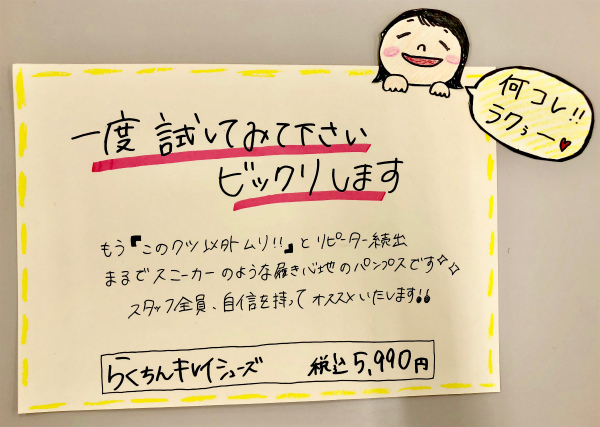 何コレ!!
ラクぅー♥
一度 試してみて下さい
ビックリします
もう『このクツ以外ムリ!!』と リピーター続出
まるでスニーカーのような履き心地のパンプスです✧✧
スタッフ全員、自信を持ってオススメいたします!!
らくちんキレイシューズ 税込5,990円